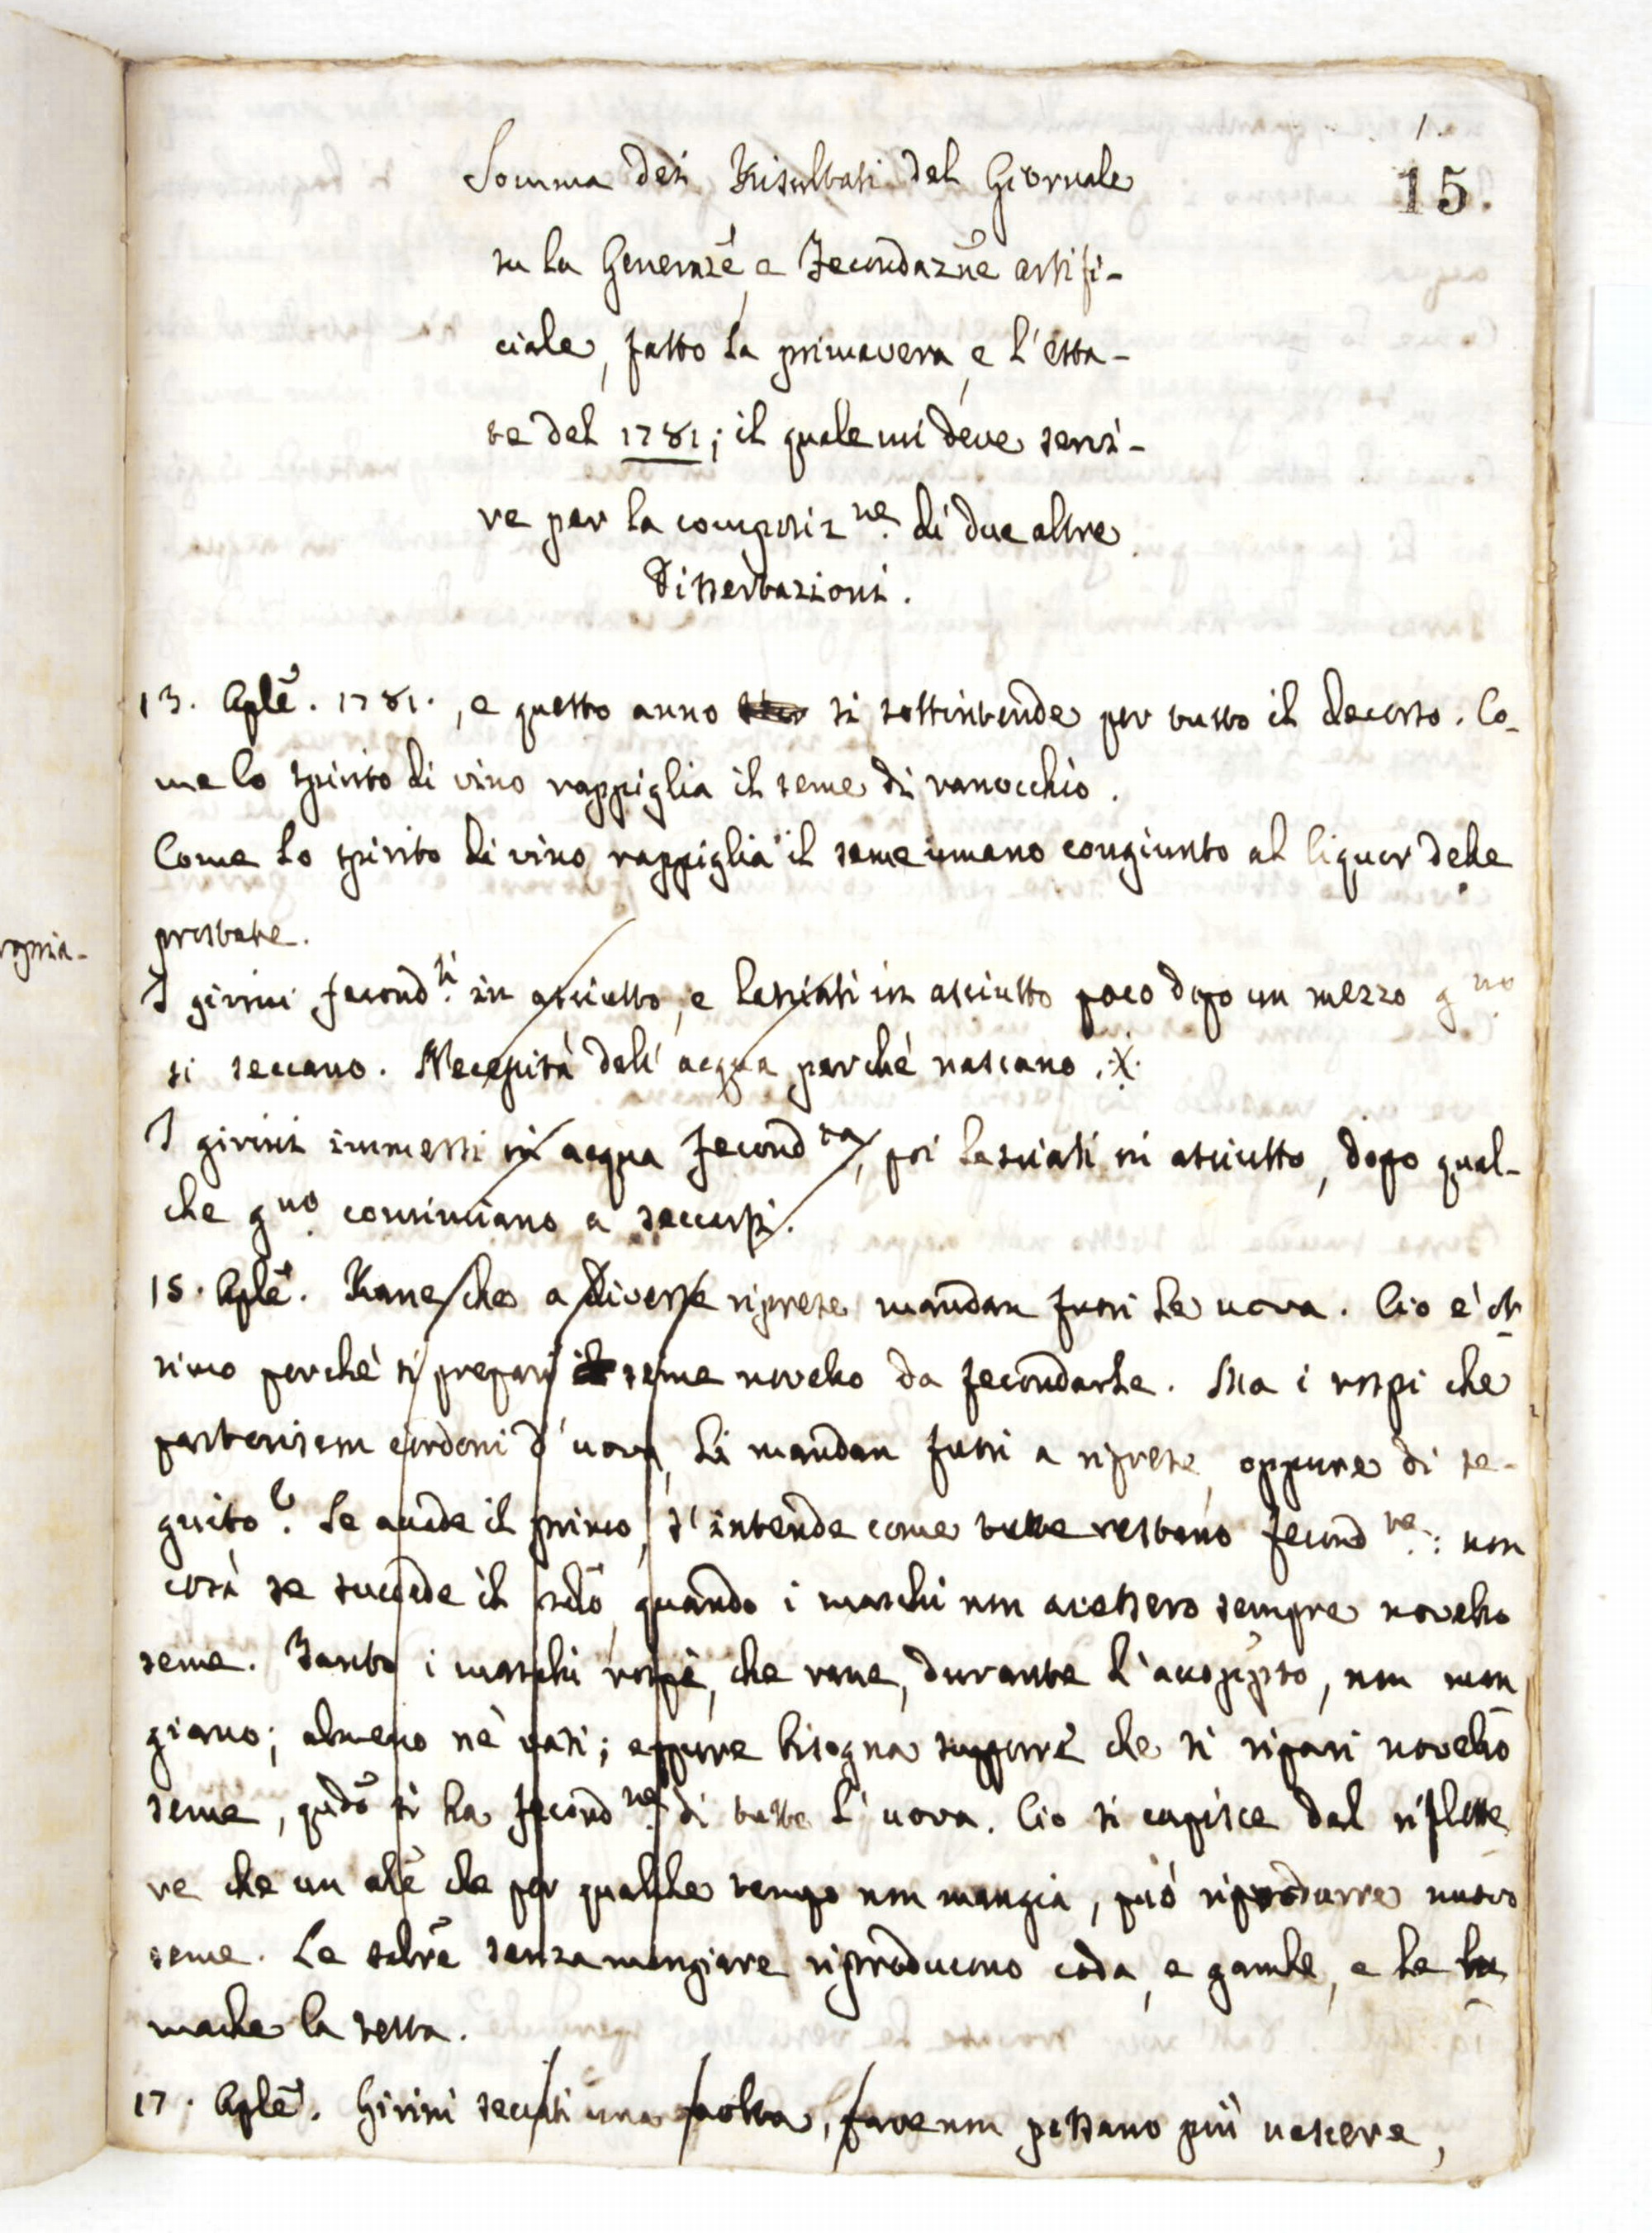 1.
15.
Somma dei Risultati del Giornale
su la Generazē, e Fecondazn̄e artifi-
ciale, fatto la primavera, e l'esta-
te del 1781; il quale mi deve servi-
re per la composiz.ne di due altre
Dissertazioni.
13. Aplē. 1781., e questo anno si sottintende per tutto il decorso. Co-
me lo spirito di vino rappiglia il seme di ranocchio.
Come lo spirito di vino rappiglia il seme umano congiunto al liquor delle
prostate.
I girini fecond.ti in asciutto, e lasciati in asciutto poco dopo un mezzo g.no
si seccano. Necessità dell'acqua perchè nascano.
I girini immessi in acqua fecond.ta, poi lasciati in asciutto, dopo qual-
che g.no cominciano a seccarsi.
15. Aplē. Rane che a diverse riprese mandan fuori le uova. Ciò è ot
timo perchè si prepari seme novello da fecondarle. Ma i rospi che
partoriscon cordoni d'uova, li mandan fuori a riprese, oppure di se-
guito? Se accade il primo, s'intende come tutte restano fecond.te: non
così se succede il sdō, quando i maschi non avessero sempre novello
seme. Tanto i maschi rospi, che rane, durante l'accoppto, non man
giano; almeno nè vasi; eppure bisogna supporre che si ripari novello
seme, qudō si ha fecond.ne di tutte l'uova. Ciò si capisce dal riflette
re che un alē che per qualche tempo non mangia, può riprodurre nuovo
seme. Le salrē senza mangiare riproducono coda, e gambe, e le lu
mache la testa.
17. Aplē. Girini seccati una volta, non possano più nascere,